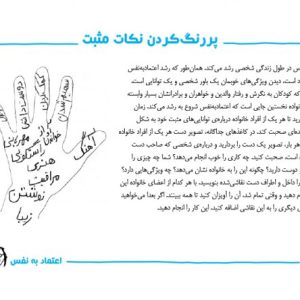 پررنگ‌کردن نکات مثبت
س در طول زندگی شخصی رشد می‌کند. همان‌طور که رشد اعتمادبه‌نفس
د است، دیدن ویژگی‌های خوبمان یک باور شخصی و یک توانایی است.
که کودکان به نگرش و رفتار والدین و خواهران و برادرانشان بسیار وابسته
اده نخستین جایی است که اعتمادبه‌نفس شروع به رشد می‌کند. می‌توانید
ده از افراد خانواده درباره‌ی توانایی‌های مثبت خود به شکل
صحبت کنید. در کاغذهای جداگانه، تصویر دست هر یک از افراد خانواده
هر بار، تصویر یک دست را بردارید و درباره‌ی شخصی که صاحب دست
است، صحبت کنید. چه کاری را خوب انجام می‌دهد؟ شما چه چیزی را
دوست دارید؟ چگونه این را به خانواده نشان می‌دهد؟ چه ویژگی‌هایی دارد؟
را داخل و اطراف دست نقاشی‌شده بنویسید. با هر کدام از اعضای خانواده این
دهید و وقتی تمام شد، آن را آویزان کنید تا همه ببینند. اگر بعدا می‌خواهید
دیگری را به این نقاشی اضافه کنید، این کار را انجام دهید.
دوست داشتنی
مهربانی
آهنگ
هنری
مراقبت
نوشتن
زیبا
اعتماد به نفس